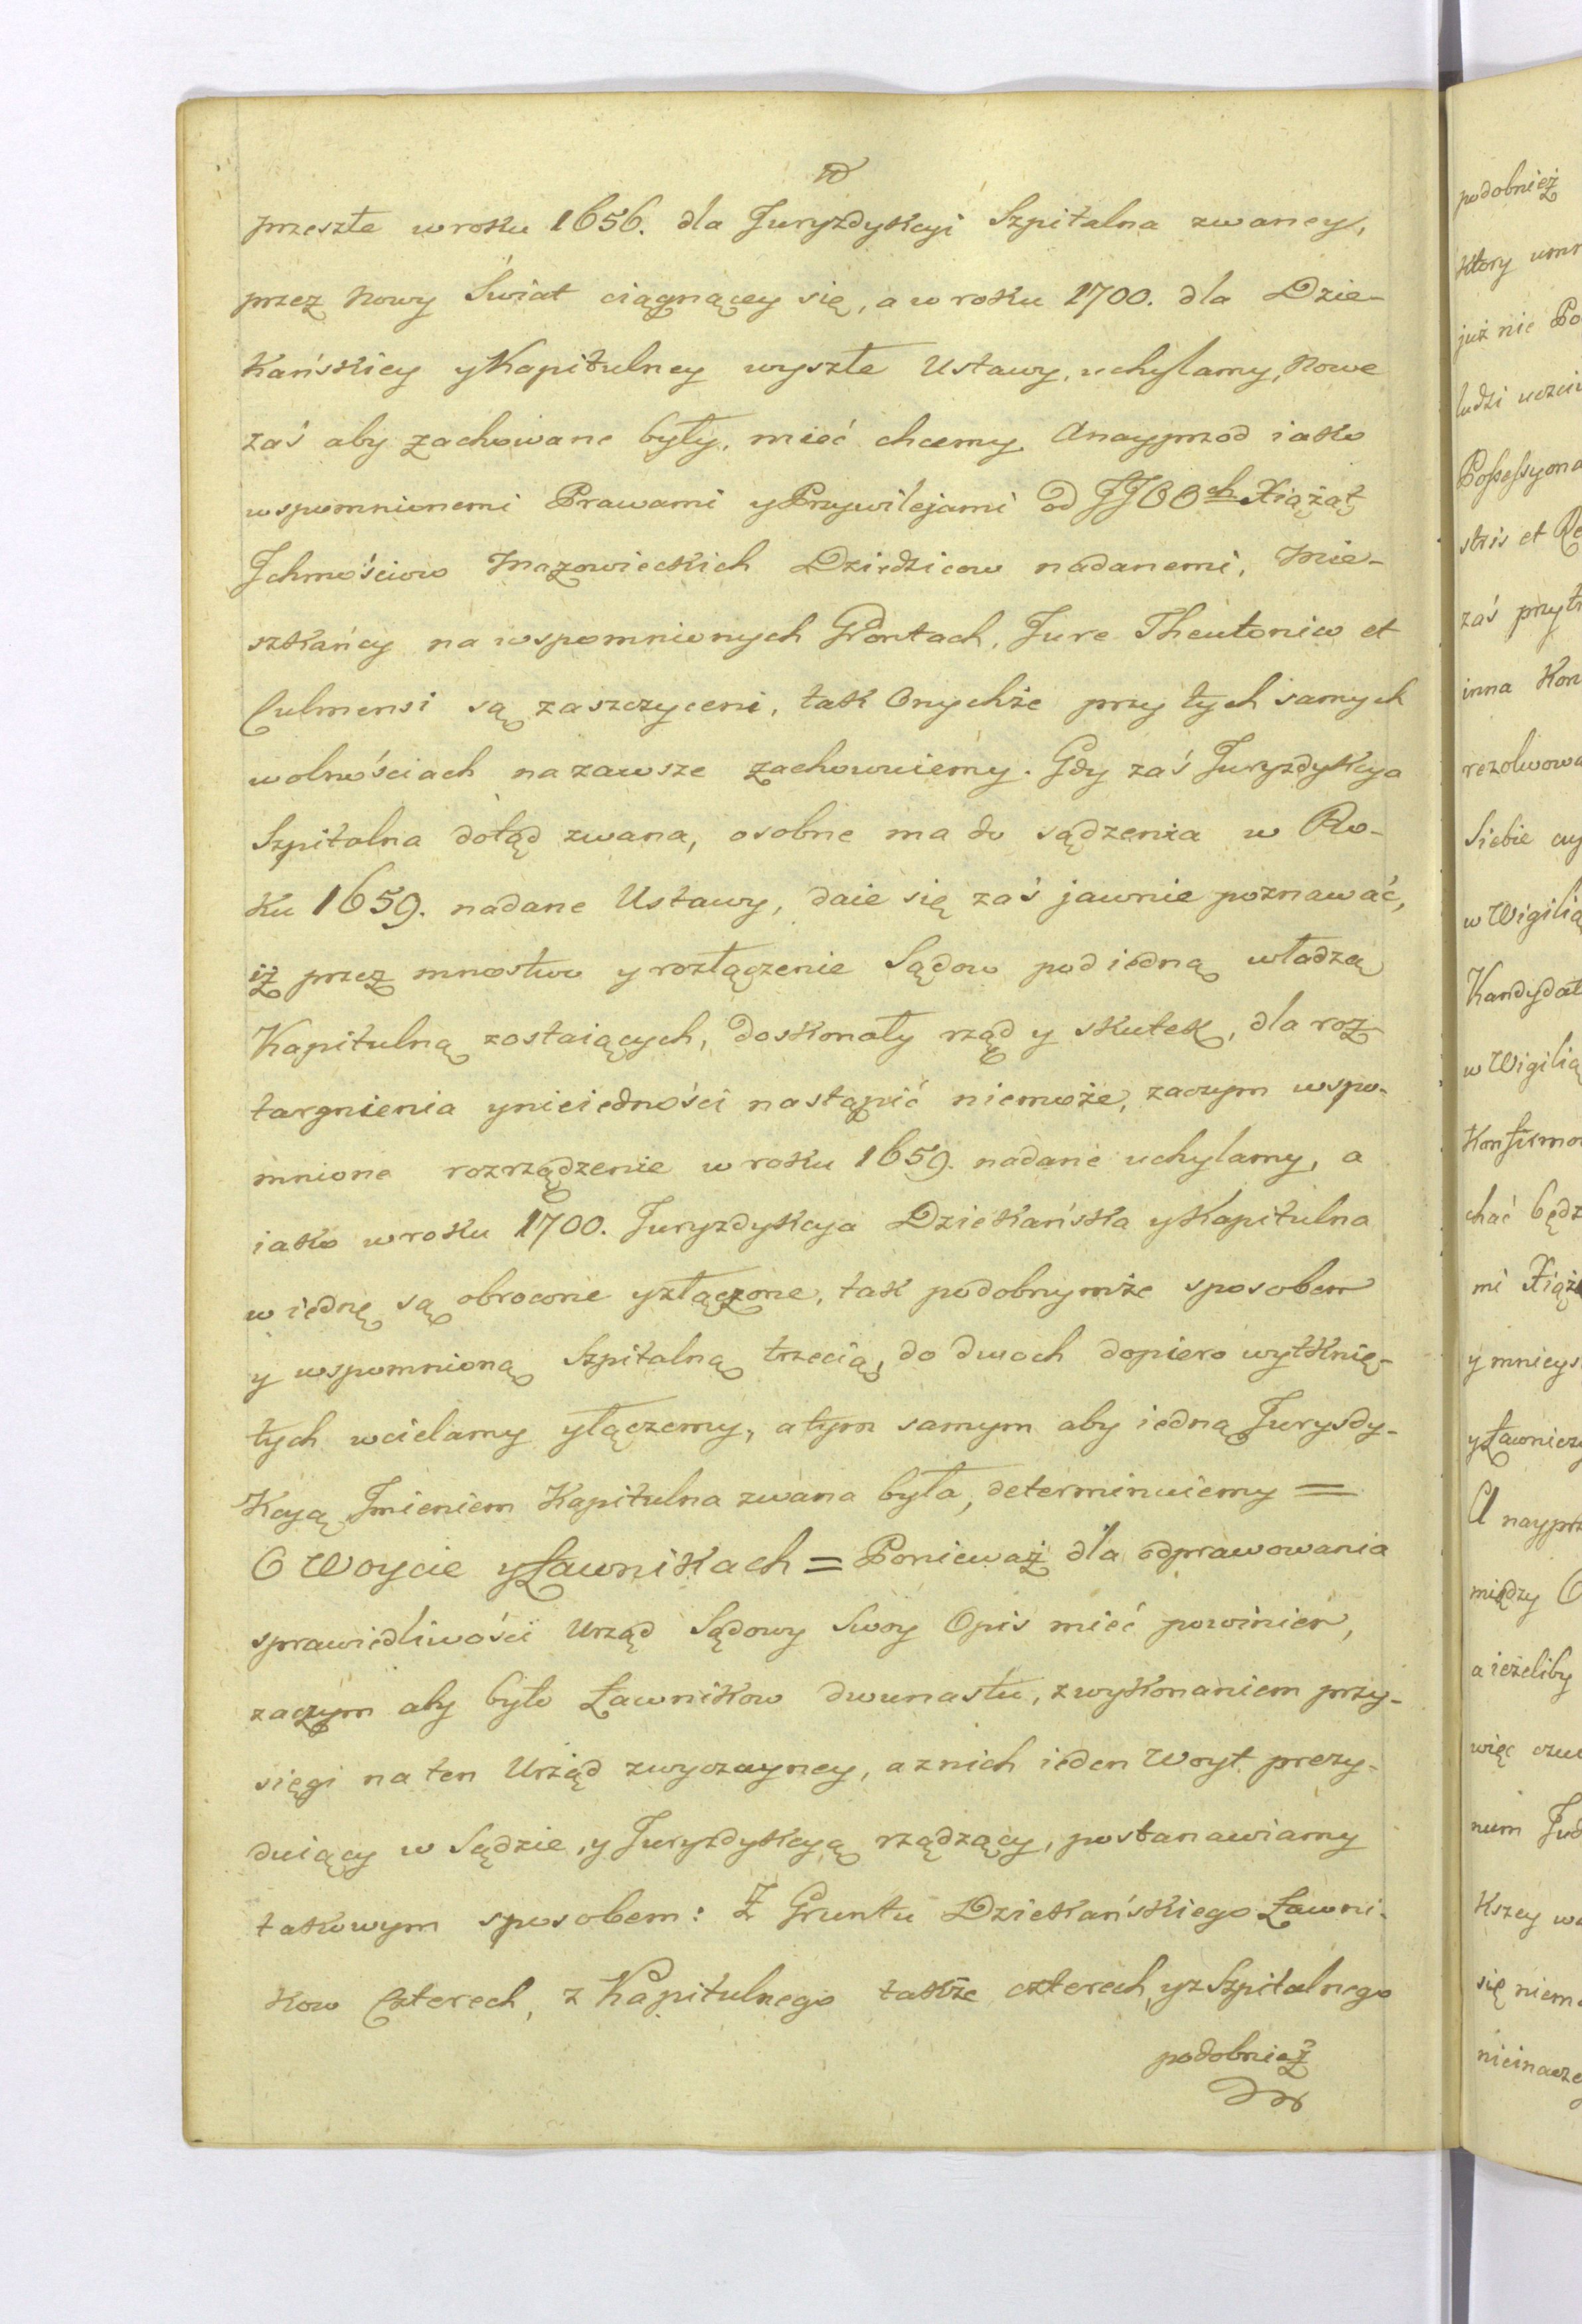 przeszłe w roku 1656. dla Juryzdykcyi Szpitalna zwaney,
przez nowy Świat ciągnącey się, a w roku 1700. dla Dzie-
kańskiey y Kapitulney wyszłe Ustawy, uchylamy, nowe
zaś aby zachowane były, mieć chcemy. A nayprzod iako
wspomnionemi Prawami y Przywilejami od JJOOch Xiążąt
Ichmościow Mazowieckich Dziedzicow nadanemi, Mie-
szkańcy na wspomnionych Gruntach, Jure Theutonico et
Culmensi są zaszczyceni, tak Onychże przy tych samych
wolnościach na zawsze zachowuiemy. Gdy zaś Juryzdykcya
Szpitalna dotąd zwana, osobne ma do sądzenia w Ro-
ku 1659. nadane Ustawy, daie się zaś jawnie poznawać,
iż przez mnostwo y rozłączenie Sądow pod iedną władzą
Kapitulną zostaiących, doskonały rząd y skutek, dla roz-
targnienia y nieiedności nastąpić niemoże, zaczym wspo-
mnione rozrządzenie w roku 1659. nadane uchylamy, a
iako w roku 1700. Juryzdykcya Dziekańska y Kapitulna
w iednę są obrocone y złączone, tak podobnymże sposobem
y wspomnioną Szpitalną trzecią, do dwoch dopiero wytknię-
tych wcielamy y łączemy, a tym samym aby iedną Jurysdy-
kcyą Imieniem Kapitulna zwana była, determinuiemy =
O Woycie y Ławnikach = Ponieważ dla odprawowania
sprawiedliwości Urząd Sądowy Swoy Opis mieć powinien,
zaczym aby było Ławnikow dwunastu, z wykonaniem przy-
sięgi na ten Urząd zwyczayney, a z nich ieden Woyt prezy-
duiący w Sądzie, y Juryzdykcyą rządzący, postanawiamy
takowym sposobem: Z Gruntu Dziekańskiego Ławni-
kow Czterech, z Kapitulnego także czterech, y z Szpitalnego
podobnież
podobnież
ktory
już nie
ludzi
zaś
inna
Siebie
w Wigilią
w Wigilią
a ieżeliby
więc